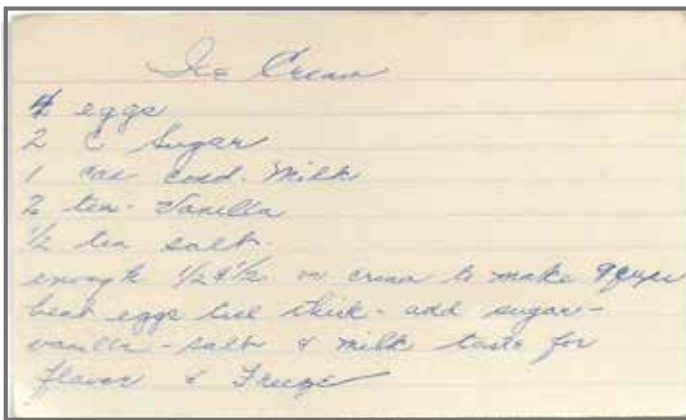 Ice Cream
4 eggs
2 C Sugar
1 can cond. Milk
2 tea. Vanilla
1/2 tea salt.
enough 1/2 & 1/2 or cream to make
beat eggs till thick - add sugar -
vanilla - salt & milk taste for
flavor & Freeze